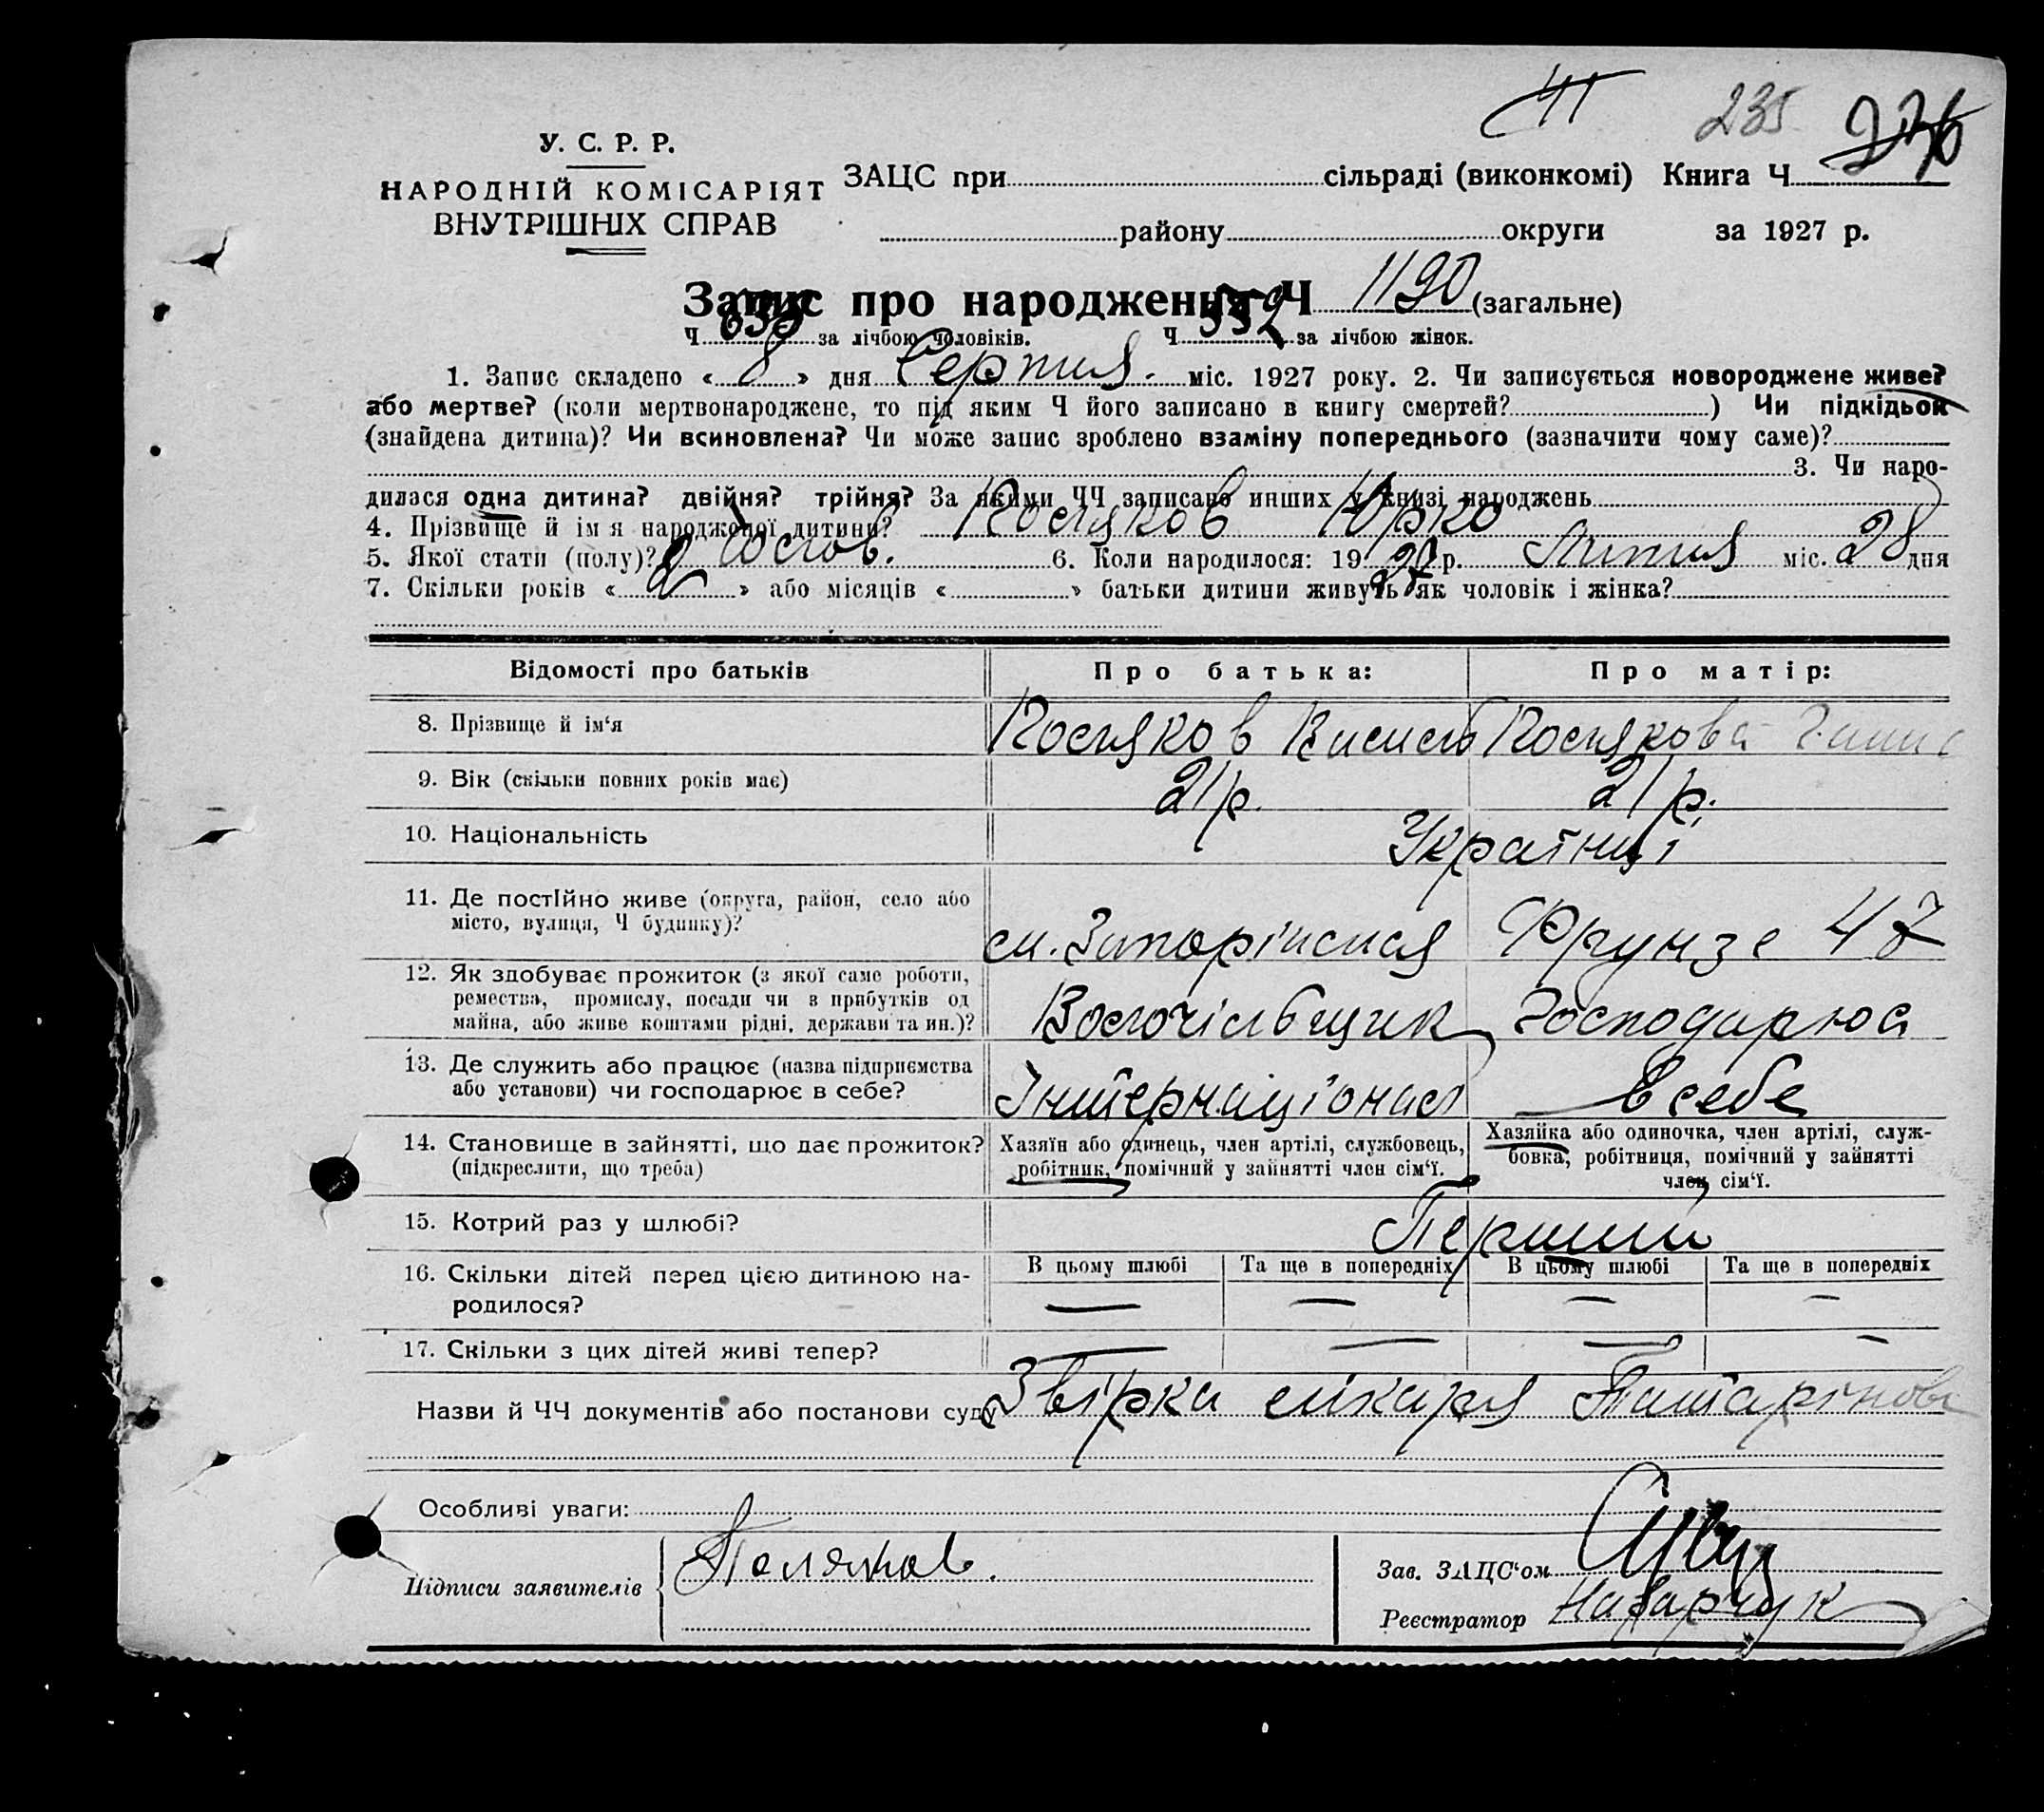 235
У. С. Р. Р.
НАРОДНІЙ КОМІСАРІЯТ
ВНУТРІШНІХ СПРАВ
ЗАЦС при сільраді (виконкомі) Книга Ч
району округи за 1927 р.
Запис про народження Ч 1190 (загальне)
Ч за лічбою чоловіків. Ч 552 за лічбою жінок.
1. Запис складено « 8 » дня Серпня. міс. 1927 року. 2. Чи записується новороджене живе?
або мертве? (коли мертвонароджене, то під яким Ч його записано в книгу смертей? ) Чи підкідьок
(знайдена дитина)? Чи всиновлена? Чи може запис зроблено взаміну попереднього (зазначити чому саме)?
3. Чи наро-
дилася одна дитина? двійня? трійня? За якими ЧЧ записано инших у книзі народжень
4. Прізвище й імя народженої дитини? Юрко
5. Якої статі (полу)? Чолов. 6. Коли народилося: 19 27 р. Липня міс. 28 дня
7. Скільки років « 2 » або місяців « » батьки дитини живуть як чоловік і жінка?
Відомості про батьків Про батька: Про матір:
8. Прізвище й ім‘я
9. Вік (скільки повних років має) 21 р. 21 р.
10. Національність Українці
11. Де постійно живе (округа, район, село або
місто, вулиця, Ч будинку)? Фрунзе 47
12. Як здобуває прожиток (з якої саме роботи,
ремества, промислу, посади чи з прибутків од
майна, або живе коштами рідні, держави та ин.)? Господарює
13. Де служить або працює (назва підприємства
або установи) чи господарює в себе? Інтернаціонал в себе
14. Становище в зайнятті, що дає прожиток?
(підкреслити, що треба)
Хазяїн або одинець, член артілі, службовець,
робітник, помічний у зайнятті член сім‘ї.
Хазяйка або одиночка, член артілі, служ-
бовка, робітниця, помічний у зайнятті
член сім‘ї.
15. Котрий раз у шлюбі? Перший
16. Скільки дітей перед цією дитиною на-
родилося?
В цьому шлюбі Та ще в попередніх В цьому шлюбі Та ще в попередніх
— — — —
17. Скільки з цих дітей живі тепер? — — — —
Назви й ЧЧ документів або постанови суду Звірка лікаря
Особливі уваги:
Підписи заявителів
Зав. ЗАЦС‘ом
Реєстратор Назарчук